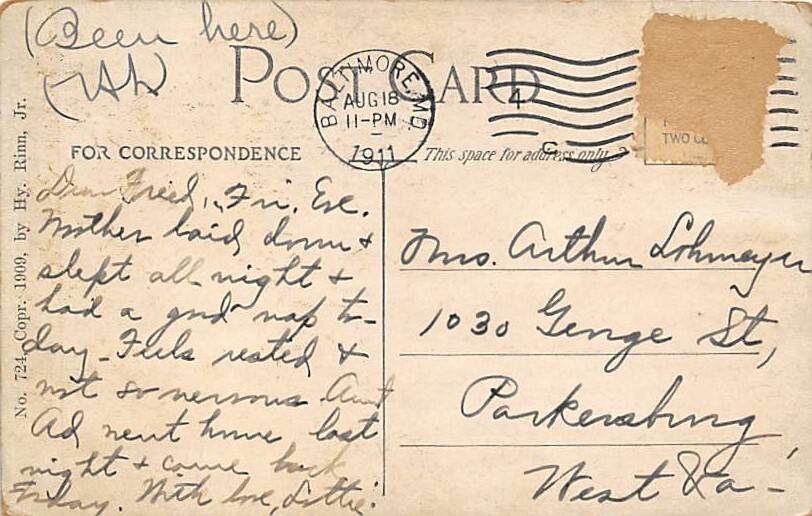 (Been here)
POST CARD
BALTIMORE, MD.
AUG 18
11-PM
1911
4
TWO
FOR CORRESPONDENCE
This space for address only
No. 724, Copr. 1909, by Hy. Rinn, Jr.
Dear Freed, Fri. Eve.
Mother laid down &
slept all night &
had a good nap to-
day - Feels rested &
not so nervous Aunt
Ad went home last
night & come back
Friday. With love, Lottie.
Mrs. Arthur Lohmeyer
1030 George St,
Parkersburg,
West Va -